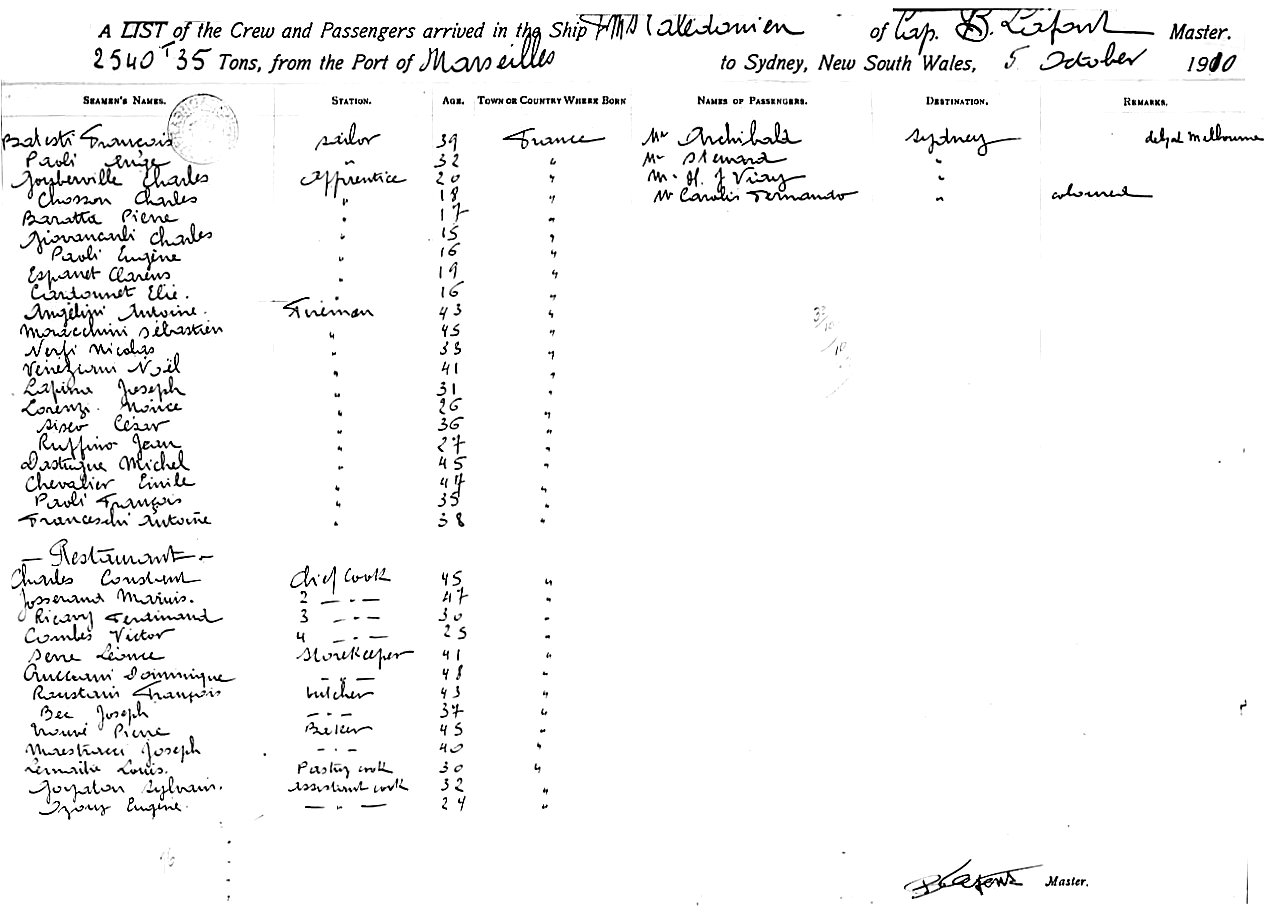 A LIST of the Crew and Passengers arrived in the Ship Calédonien of Cap. B. Lafont Master.
2540 T 35 Tons, from the Port of Marseilles to Sydney, New South Wales, 5 October 1910
SEAMEN'S NAMES. STATION. AGE. TOWN OR COUNTRY WHERE BORN NAMES OF PASSENGERS. DESTINATION. REMARKS.
Batesti François sailor 39 France Mr Archibald Sydney Melbourne
Paoli Ange " 32 " Mr Steward "
Goyberville Charles Apprentice 20 " M. H. J "
Chosson Charles " 18 " Mr Carolis Fernando " coloured
Baratta Pierre " 17 "
Giovancarli Charles " 15 "
Paoli Eugène " 16 "
Espanet Clarens " 19 "
Cardonnet Elie. " 16 "
Angelini Antoine. Fireman 43 "
Moracchini Sébastien " 45 "
Nerfi Nicolas " 33 "
Veneziani Noël " 41 "
Joseph " 31 "
Lorenzi " 26 "
Sisco César " 36 "
Ruffino Jean " 27 "
Dastugue Michel " 45 "
Chevalier Emile " 47 "
Paoli François " 35 "
Franceschi Antoine " 38 "
— Restaurant —
Charles Constant Chief Cook 45 "
Josserand Marius. 2 — " — 47 "
Ricavy Ferdinand 3 — " — 30 "
Combes Victor 4 — " — 25 "
Serre Léonce Storekeeper 41 "
Dominique — " — 48 "
Roustain François butcher 43 "
Bec Joseph — " — 37 "
Pierre Baker 45 "
Maestracci Joseph — " — 40 "
Lemaitre Louis. Pastry cook 30 "
Sylvain. assistant cook 32 "
Eugène. — " — 24 "
B Lafont Master.